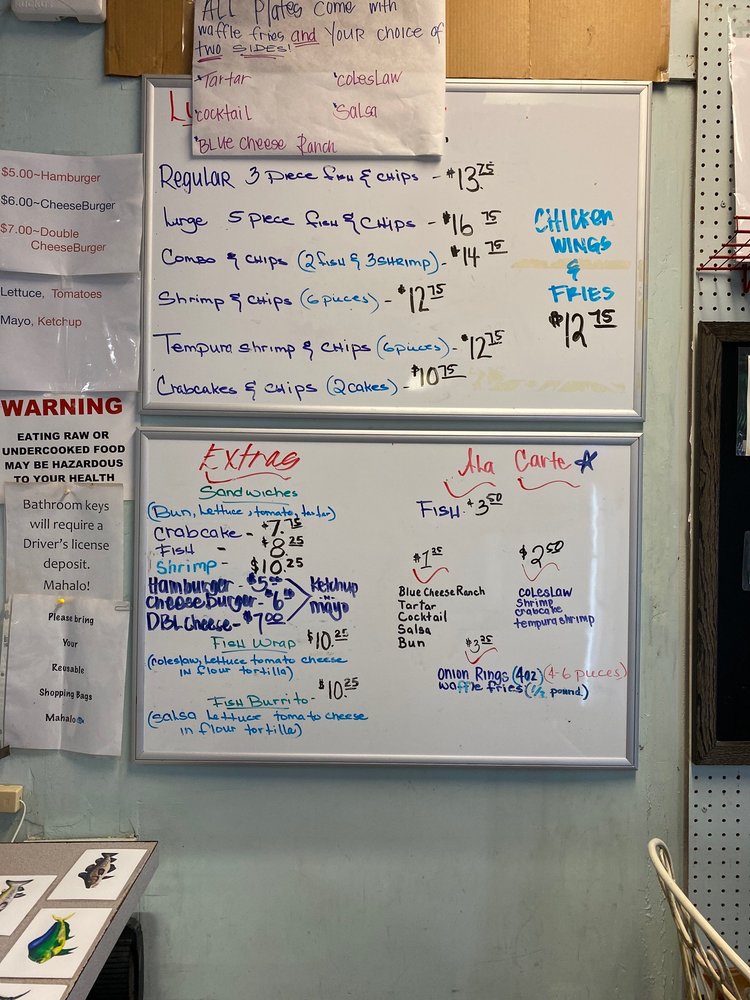 ALL Plates come with
waffle fries and YOUR choice of
two SIDES!
Tartar
coleslaw
cocktail
Salsa
BLUE Cheese Ranch
Regular 3 piece fish & chips - $13.75
Large 5 piece fish & chips - $16 75
Combo & chips (2 fish & 3 shrimp) - $14 75
Shrimp & chips (6 pieces) - $12 75
Tempura shrimp & chips (6 pieces) - $12 75
Crabcakes & chips (2 cakes) - $10 75
CHICKEN
WINGS
&
FRIES
$12 75
$5.00~Hamburger
$6.00~CheeseBurger
$7.00~Double
CheeseBurger
Lettuce, Tomatoes
Mayo, Ketchup
WARNING
EATING RAW OR
UNDERCOOKED FOOD
MAY BE HAZARDOUS
TO YOUR HEALTH
Bathroom keys
will require a
Driver's license
deposit.
Mahalo!
Please bring
Your
Reusable
Shopping Bags
Mahalo
Extras
Sandwiches
(Bun, Lettuce, tomato, tartar)
crabcake - $7.75
FISH - $8.25
Shrimp - $10.25
Hamburger - $5.00
cheeseBurger - $6.00
DBL cheese - $7.00
ketchup
mayo
FISH WRAP $10.25
(coleslaw, Lettuce tomato cheese
in flour tortilla)
FISH Burrito - $10.25
(salsa Lettuce tomato cheese
in flour tortilla)
Ala Carte
FISH - $3.50
$1.25
Blue Cheese Ranch
Tartar
Cocktail
Salsa
Bun
$2.50
coleslaw
Shrimp
crabcake
tempura shrimp
$3.25
onion Rings (4oz) (4-6 pieces)
waffle fries (1/2 pound)